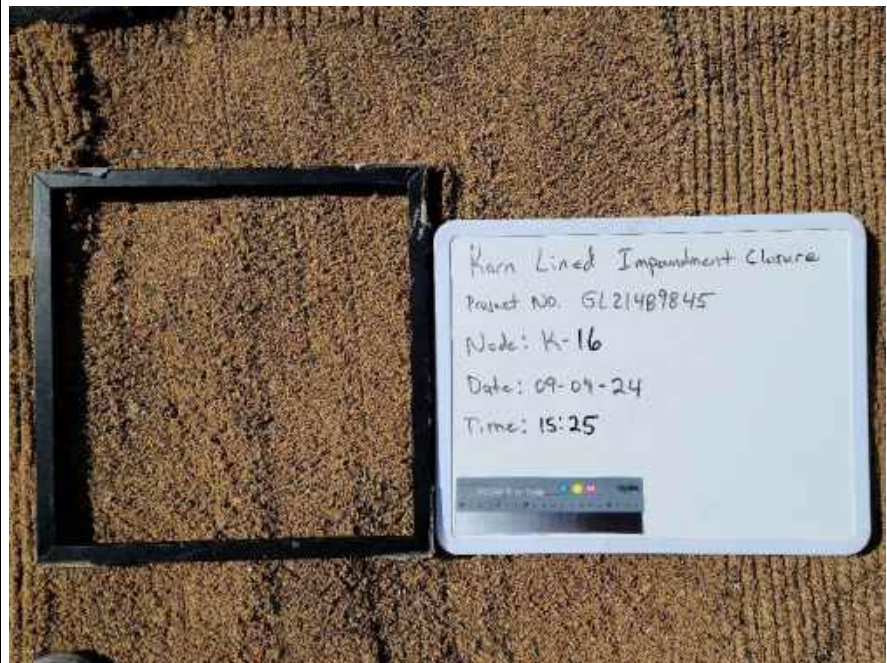 Karn Lined Impoundment Closure
Project No. GL21489845
Node: K-16
Date: 09-09-24
Time: 15:25